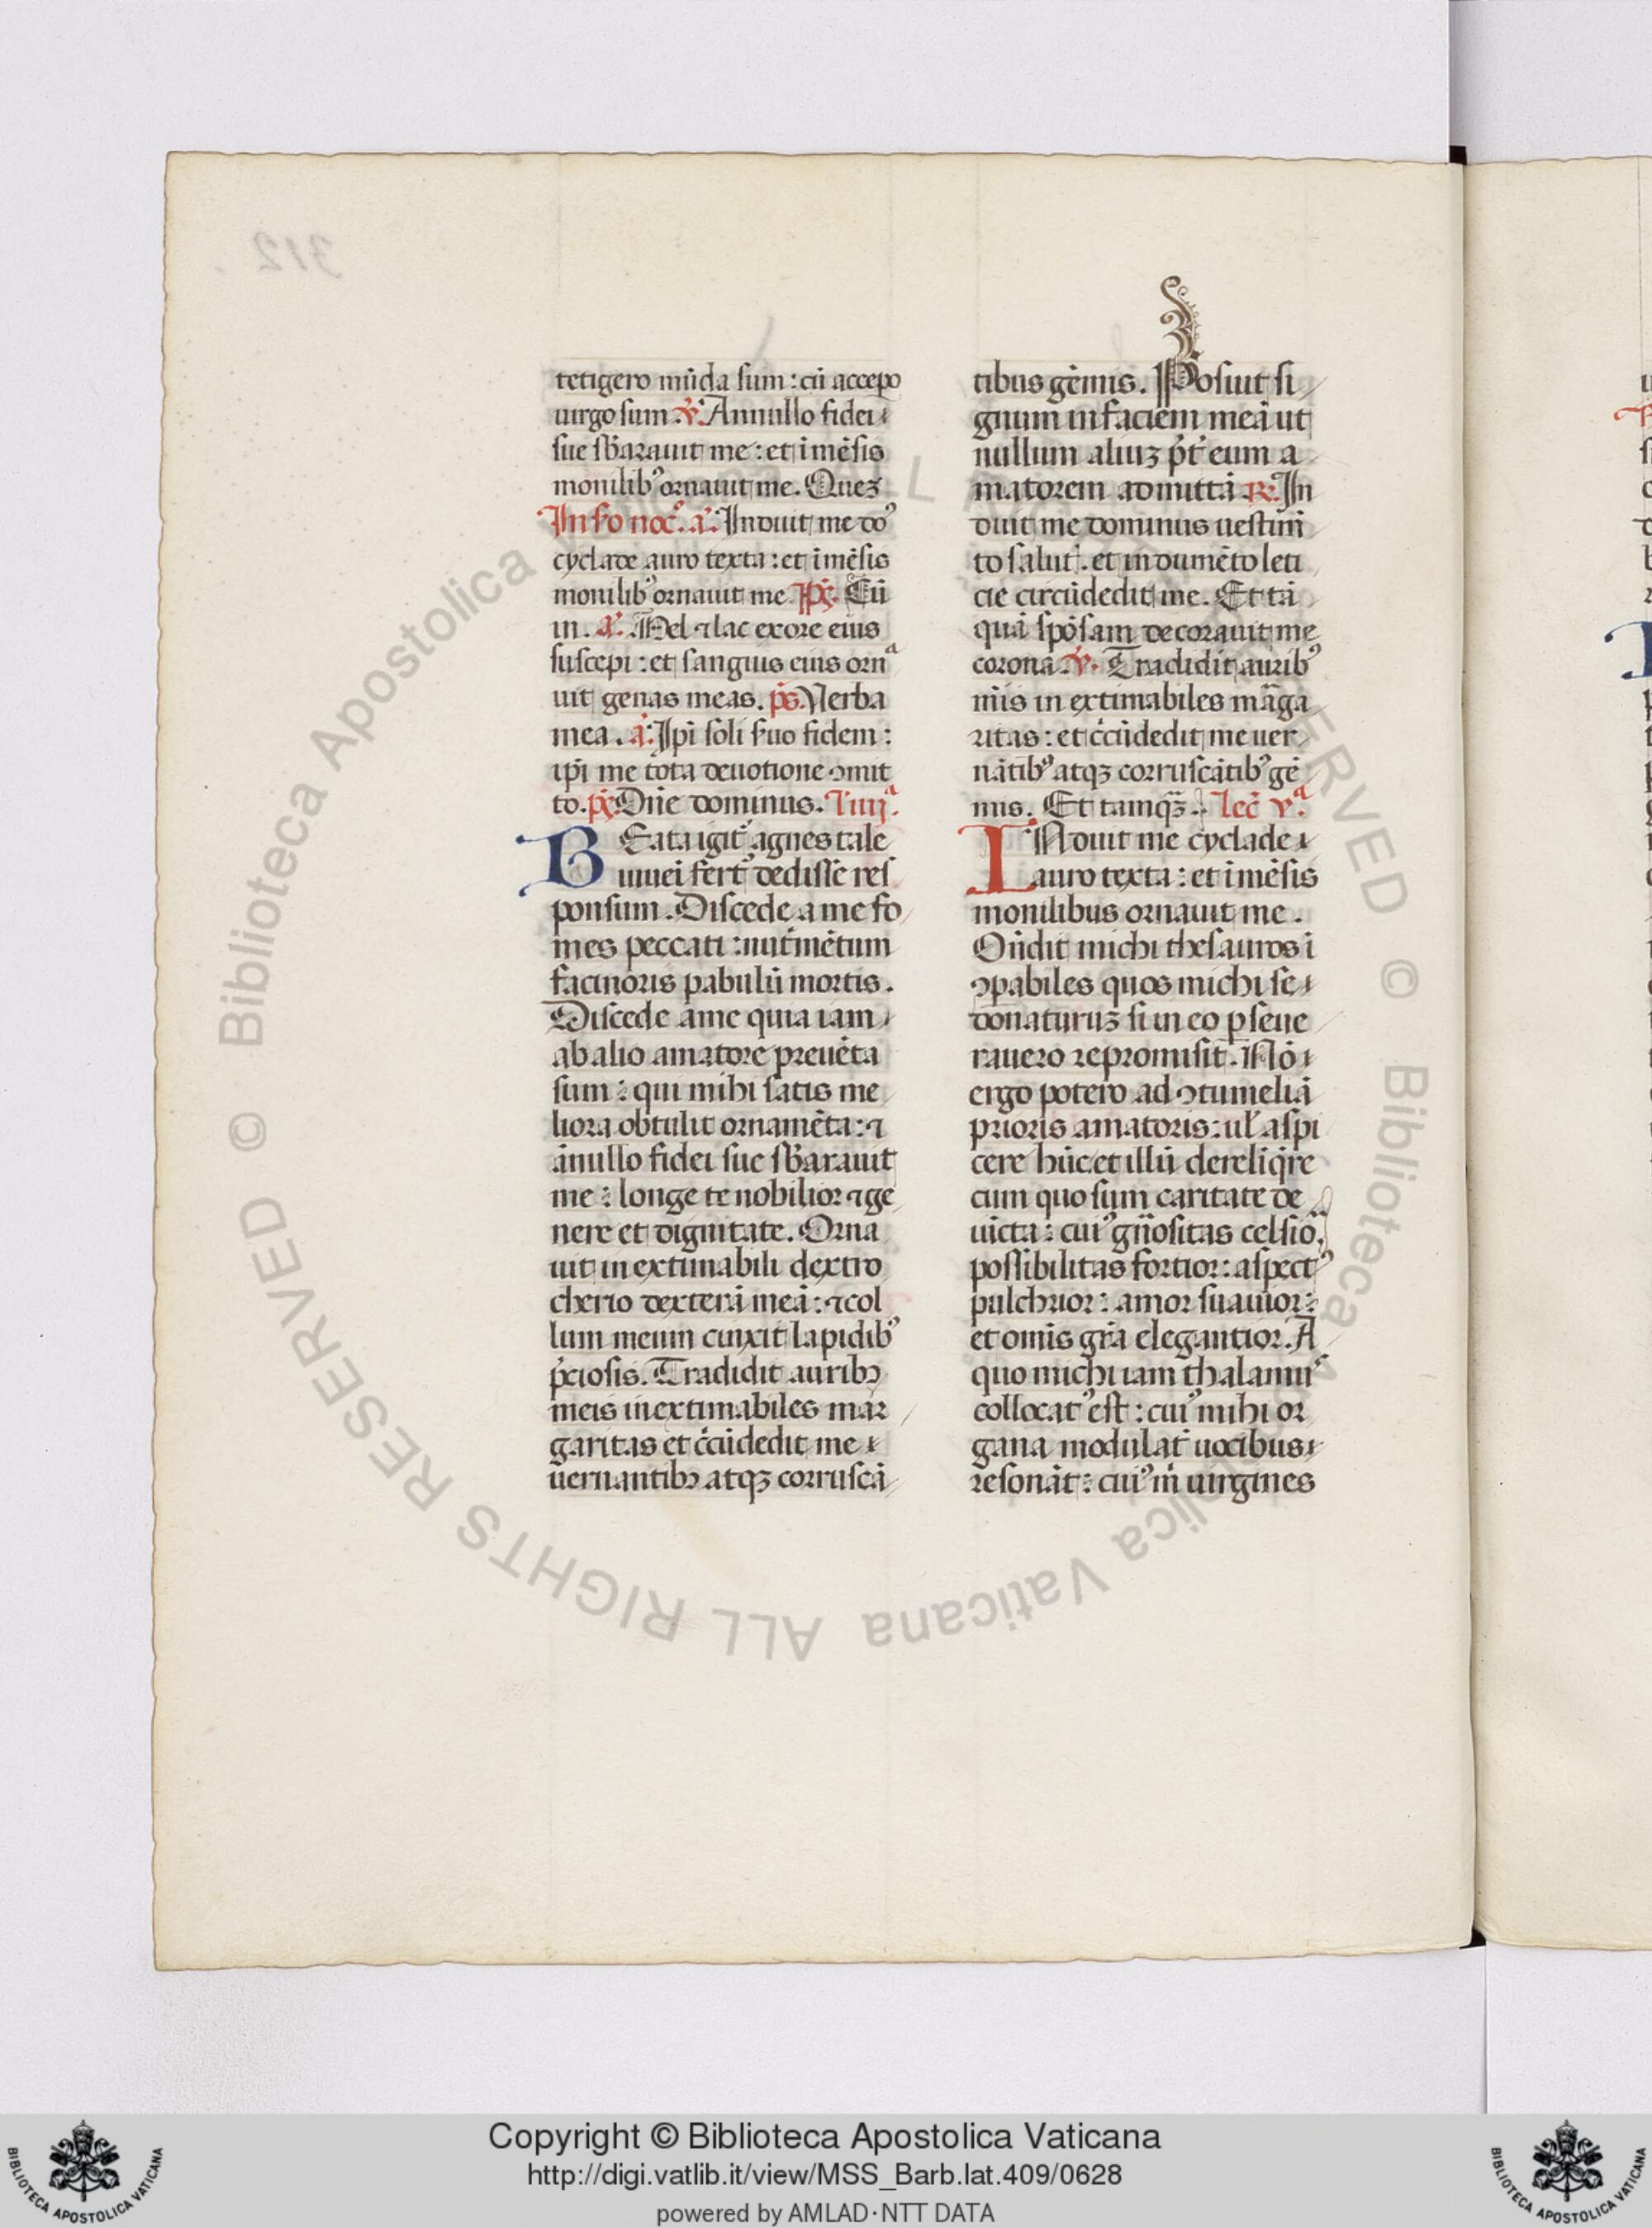 tetigero mūda sum : cū accepo
uirgo sum. ℣. Annullo fidei
sue sb̄arauit me : et īmēsis
monilibꝰ ornauit me. Queʒ
In ſ̄o noc̄. a. Induit me dō
cyclade auro texta : et īmēsis
monilibꝰ ornauit me. p̄s. Cū
in. a. Mel ⁊ lac ex ore eius
suscepi : et sanguis eius ornᵃ
uit genas meas. p̄s. Verba
mea. a. Ip̄i soli s̄uo fidem :
ip̄i me tota deuotione ꝯmit
to. p̄s. Dn̄e dominus. l' iiijᵃ.
Beata igit̄ agnes tale
iuueī fert᷒ dedisse res
ponsum. Discede a me fo
mes peccati : nut̄mētum
facinoris pabulū mortis.
Discede a me quia iam
ab alio amatore preuēta
sum : qui mihi satis me
liora obtulit ornamēta : ⁊
ānullo fidei sue sb̄arauit
me : longe te nobilior ⁊ ge
nere et dignitate. Orna
uit inextimabili dextro
cherio dexterā meā : ⁊ col
lum meum cinxit lapidibꝰ
p̄ciosis. Tradidit auribꝫ
meis inextimabiles mar
garitas et c̄cūdedit me
uernantibꝫ atqꝫ corruscā
tibus gēmis. Posuit si
gnum in faciem meā ut
nullum aliuʒ p̄t̄ eum a
matorem admittā. ℟. In
duit me dominus uestim̄
to salut̄. et indumēto leti
cie circūdedit me. Et tā
quā spōsam decorauit me
corona. ℣. Tradidit auribꝰ
m̄is inextimabiles māga
ritas : et c̄cūdedit me uer
nātibꝰ atqꝫ corruscātibꝰ gē
mis. Et tamqꝫ. lec̄ vᵃ.
INduit me cyclade
auro texta : et īmēsis
monilibus ornauit me.
On̄dit michi thesauros ī
ꝯpabiles quos michi se
donaturuʒ si in eo ꝑseue
rauero repromisit. Nō
ergo potero ad ꝯtumeliā
prioris amatoris : ul̄ aspi
cere hūc et illū derelīq̄re
cum quo sum caritate de
uicta : cuiꝰ gn̄ositas celsio.
possibilitas fortior : aspectꝰ
pulchrior : amor suauior :
et om̄is gr̄a elegantior. A
quo michi iam thalamuˢ
collocatꝰ est : cuiꝰ mihi or
gana modulat̄ uocibus
resonāt : cuiꝰ m̄ uirgines
312
© Biblioteca Apostolica Vaticana ALL RIGHTS RESERVED
© Biblioteca Apostolica Vaticana ALL RIGHTS RESERVED
Copyright © Biblioteca Apostolica Vaticana
http://digi.vatlib.it/view/MSS_Barb.lat.409/0628
powered by AMLAD·NTT DATA
BIBLIOTECA APOSTOLICA VATICANA
BIBLIOTECA APOSTOLICA VATICANA